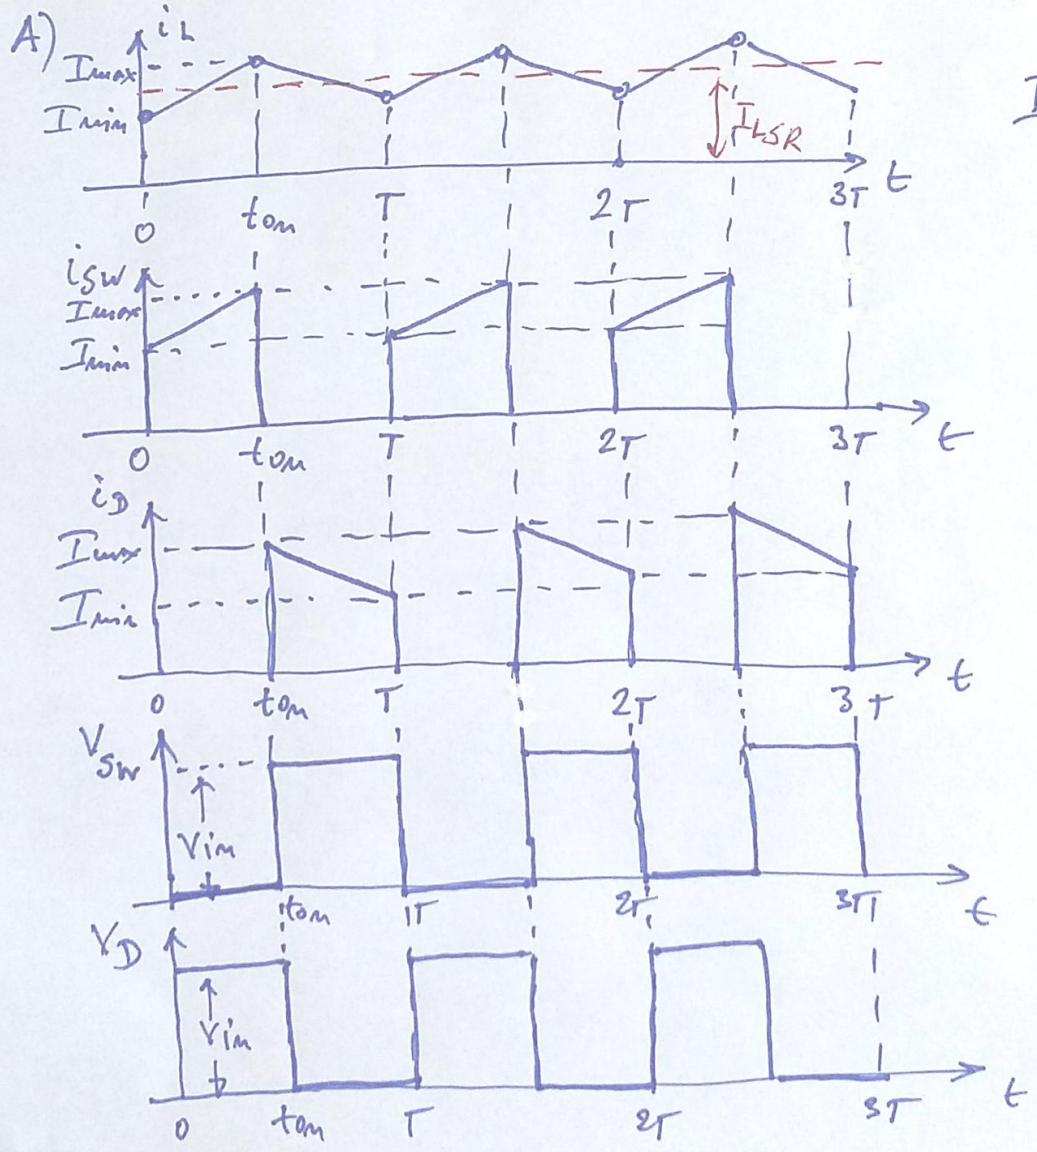 A)
iL
Imax
Imin
ILSR
I
t
0 ton T 2T 3T
iSW
Imax
Imin
0 ton T 2T 3T t
iD
Imax
Imin
0 ton T 2T 3T t
VSW
Vin
ton T 2T 3T t
VD
Vin
0 ton T 2T 3T t